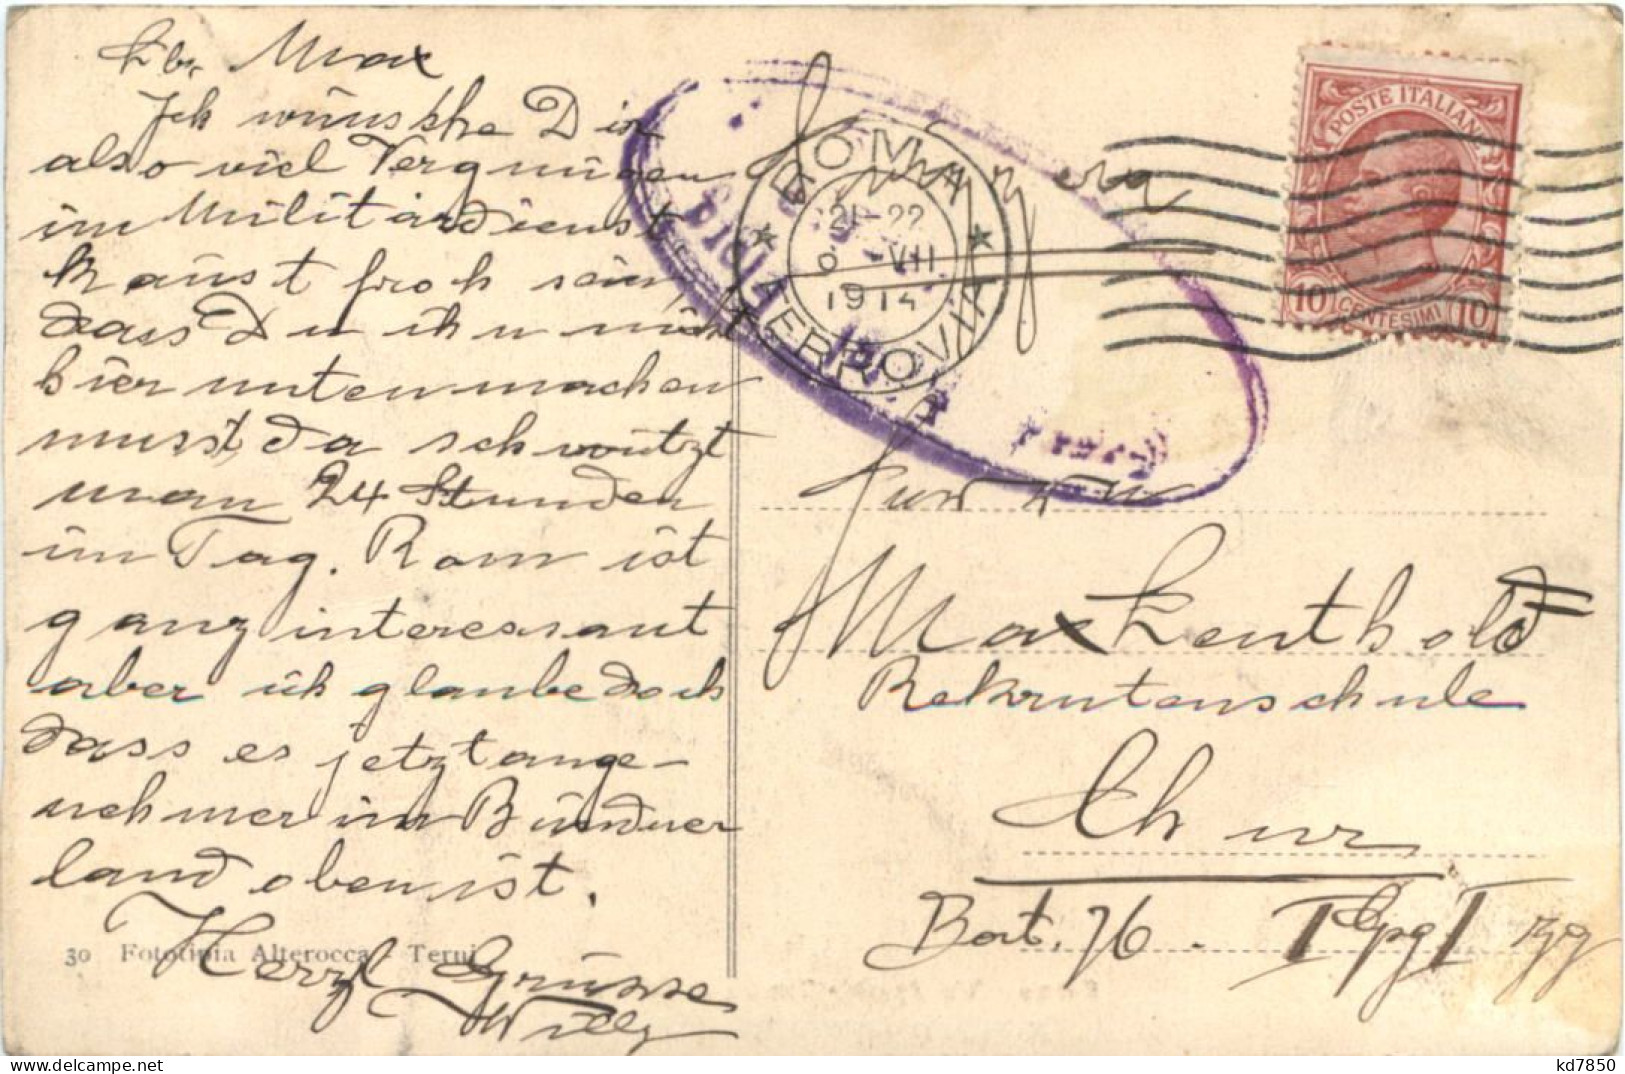 Lbr. Max
Ich wünschte Dir
also viel Vergnügen
im Militärdienst
kanst froh sein,
dass Du ihn nicht
hier unten machen
musst, da schwitzt
man 24 Stunden
im Tag. Rom ist
ganz interessant
aber ich glaube doch
dass es jetzt ange-
nehmer im Bündner
land oben ist.
Herzl Grüsse
Willy
30 Fototipia Alterocca - Terni
ROMA
21-22
VII
1914
FERROVIA
POSTE ITALIANE
10 CENTESIMI 10
Max Leuthold
Rekrutenschule
Chur
Bat. 76. I Cpg I Zg
kd7850